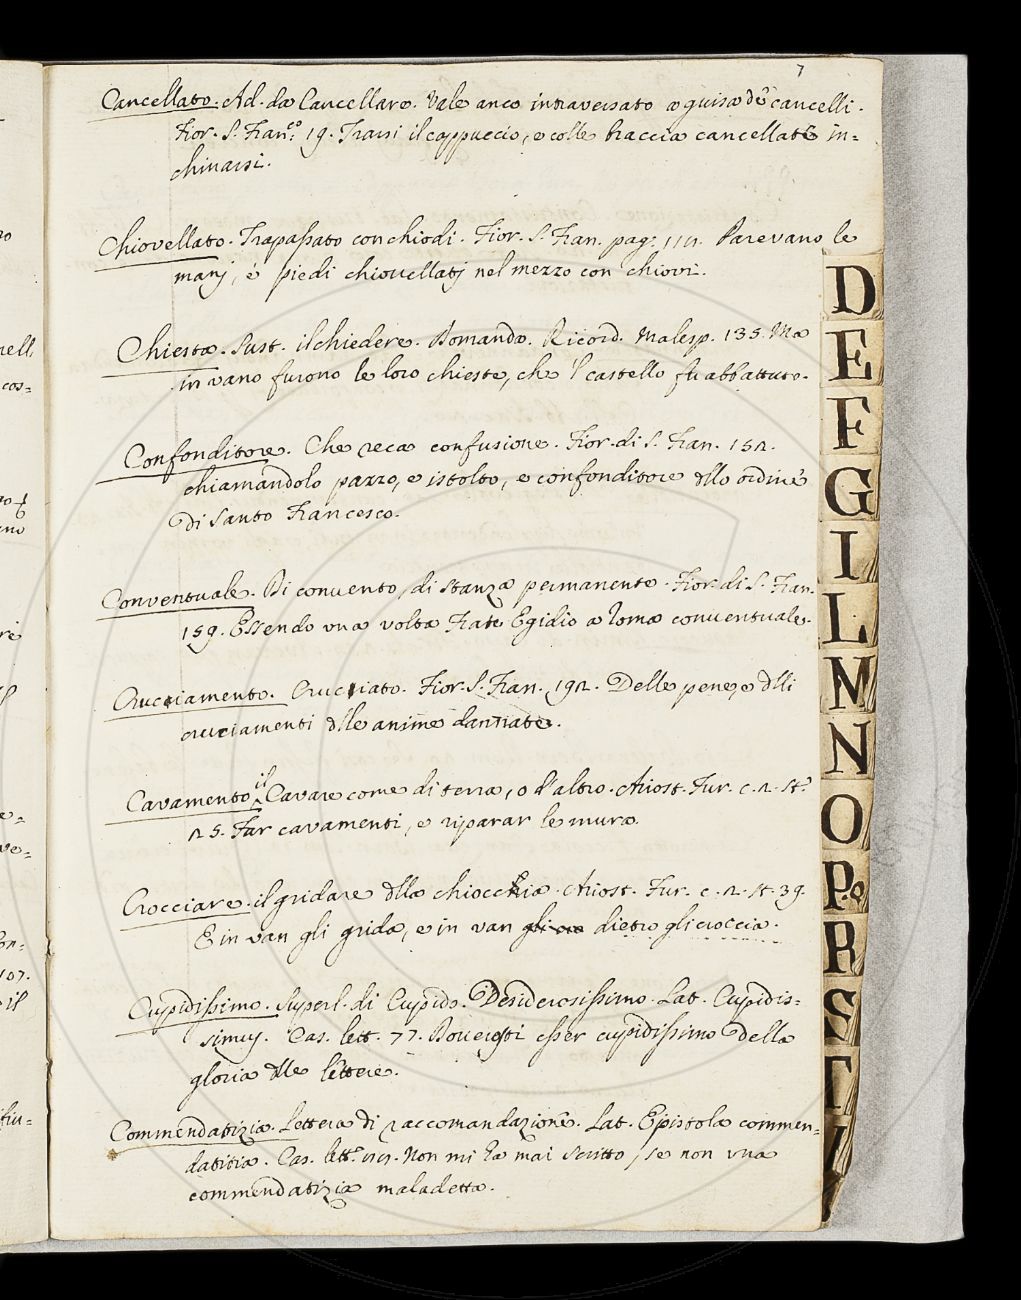 7
Cancellato. Ad. da Cancellare. Vale anco intraversato a guisa de' cancelli.
Fior. S. Fran.co 19. Trarsi il cappuccio, e colle braccia cancellate in=
chinarsi.
Chiovellato. Trapassato con chiodi. Fior. S. Fran. pag. Parevano le
manj, e piedi chiovellatj nel mezzo con chiovi.
Chiesta. Sust. il chiedere. Domanda. Ricord. Malesp. 135. Ma
in vano furono le loro chieste, che 'l castello fu abbattuto.
Confonditore. Che reca confusione. Fior. di S. Fran. 152.
chiamandolo pazzo, e istolto, e confonditore dllo ordine
di Santo Francesco.
Conventuale. Di convento, di stanza permanente. Fior. di S. Fran.
159. Essendo una volta Frate Egidio a Roma conventuale.
Cruciamento. Cruciato. Fior. S. Fran. 192. Delle pene, e dlli
cruciamenti dlle anime dannate.
Cavamento, il Cavare come di terra, o d'altro. Ariost. Fur. c. 2. St.
25. Far cavamenti, e riparar le mura.
Crocciare. il gridare dlla chioccia. Ariost. Fur. c. 2. St. 39.
E in van gli grida, e in van dietro gli croccia.
Cupidissimo. Superl. di Cupido. Desiderosissimo. Lat. Cupidis=
simus. Cas. lett. 77. Dovresti esser cupidissimo della
gloria dlle lettere.
Commendatizia. Lettera di raccomandazione. Lat. Epistola commen=
datitia. Cas. lett. Non mi ha mai scritto, se non una
commendatizia maladetta.
D
E
F
G
I
L
M
N
O
P.Q
R
S
T
V